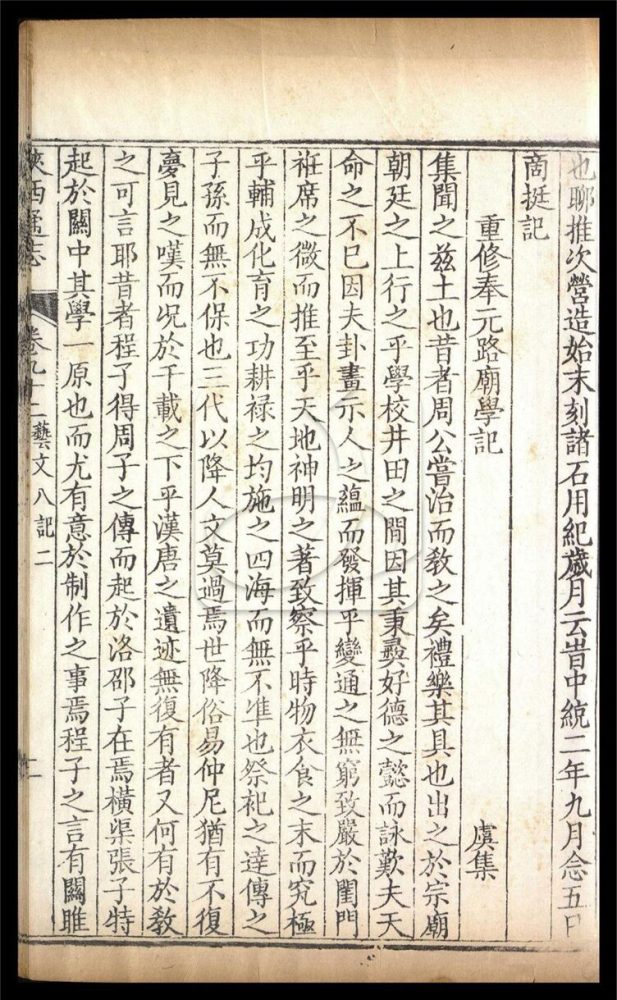 也聊推次營造始末刻諸石用紀歲月云旹中統二年九月念五日
商挺記
重修奉元路廟學記
虞集
集聞之兹土也昔者周公嘗治而教之矣禮樂其具也出之於宗廟
朝廷之上行之乎學校井田之間因其秉彝好德之懿而詠歎夫天
命之不已因夫卦畫示人之蘊而發揮乎變通之無窮致嚴於閨門
袵席之微而推至乎天地神明之著致察乎時物衣食之末而究極
乎輔成化育之功耕祿之均施之四海而無不準也祭祀之達傳之
子孫而無不保也三代以降人文莫過焉世降俗易仲尼猶有不復
夢見之嘆而況於千載之下乎漢唐之遺迹無復有者又何有於敎
之可言耶昔者程子得周子之傳而起於洛邵子在焉橫渠張子特
起於關中其學一原也而尤有意於制作之事焉程子之言有關雎
陝西通志
卷九十二藝文八記二